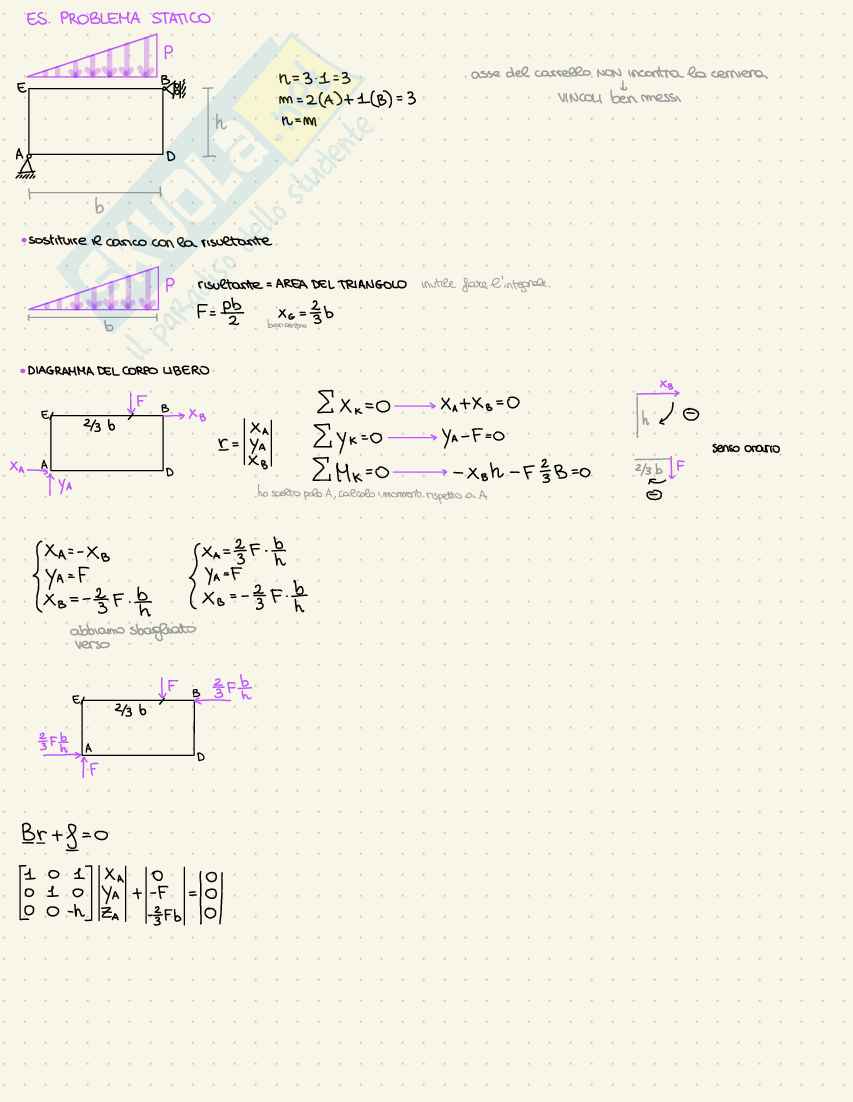 ES. PROBLEMA STATICO
P
E B
n=3·1=3
m=2(A)+1(B)=3
n=m
asse del carrello NON incontra la cerniera
↓
VINCOLI ben messi
h
A D
b
SKUOLA.net
il paradiso dello studente
• sostituire il carico con la risultante
P
b
risultante = AREA DEL TRIANGOLO inutile fare l'integrale
F = pb/2 x_G = 2/3 b
baricentro
• DIAGRAMMA DEL CORPO LIBERO
F
E B X_B
2/3 b
X_A A D
Y_A
r = | X_A Y_A X_B |
∑ X_K = 0 → X_A + X_B = 0
∑ Y_K = 0 → Y_A - F = 0
∑ M_K = 0 → - X_B h - F 2/3 B = 0
ho scelto polo A, calcolo i momenti rispetto a A
X_B
h ⊖
2/3 b F
⊖
senso orario
{ X_A = - X_B
Y_A = F
X_B = - 2/3 F · b/h
{ X_A = 2/3 F · b/h
Y_A = F
X_B = - 2/3 F · b/h
abbiamo sbagliato
verso
F
E B 2/3 F b/h
2/3 b
2/3 F b/h A D
F
Br + f = 0
[1 0 1] |X_A| |0| |0|
[0 1 0] |Y_A| + |-F| = |0|
[0 0 -h] |Z_A| |-2/3 Fb| |0|